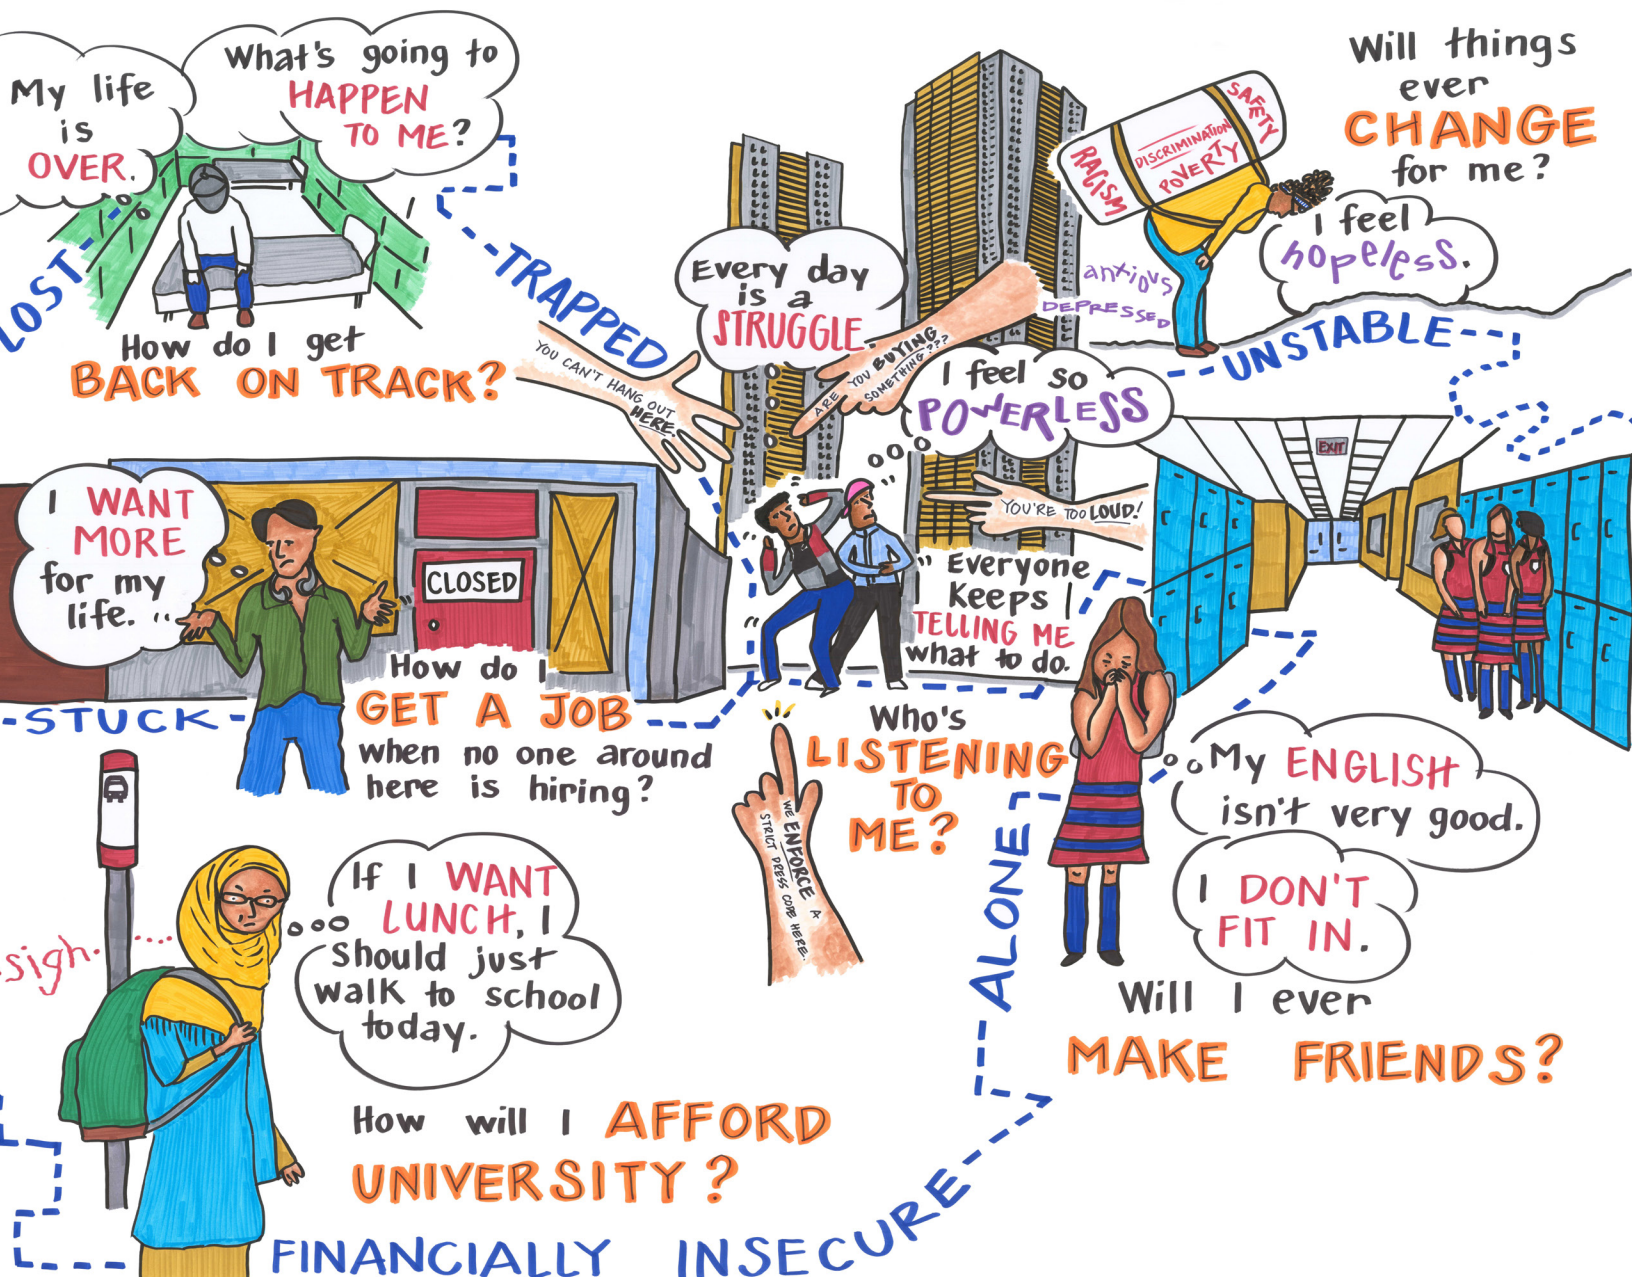 My life
is
OVER.
What's going to
HAPPEN
TO ME?
LOST
How do I get
BACK ON TRACK?
TRAPPED
YOU CAN'T HANG OUT
HERE.
Every day
is a
STRUGGLE.
ARE YOU BUYING
SOMETHING???
I feel so
POWERLESS
anxious
DEPRESSED
RACISM
DISCRIMINATION
POVERTY
SAFETY
Will things
ever
CHANGE
for me?
I feel
hopeless.
UNSTABLE
I WANT
MORE
for my
life.
CLOSED
How do I
GET A JOB
when no one around
here is hiring?
STUCK
YOU'RE TOO LOUD!
Everyone
Keeps
TELLING ME
what to do.
Who's
LISTENING
TO
ME?
WE ENFORCE A
STRICT DRESS CODE HERE.
EXIT
My ENGLISH
isn't very good.
I DON'T
FIT IN.
Will I ever
MAKE FRIENDS?
ALONE
sigh.
If I WANT
LUNCH, I
should just
walk to school
today.
How will I AFFORD
UNIVERSITY?
FINANCIALLY INSECURE